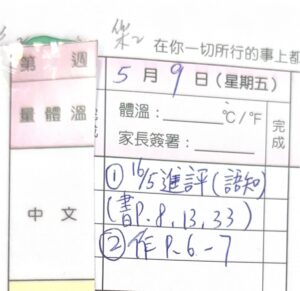 在你一切所行的事上都
第 週
5 月 9 日 (星期五)
量體溫
體溫: ℃/℉
家長簽署:
完成
中文
① 16/5 進評 (語知)
(書P.8,13,33)
② 作 P.6-7